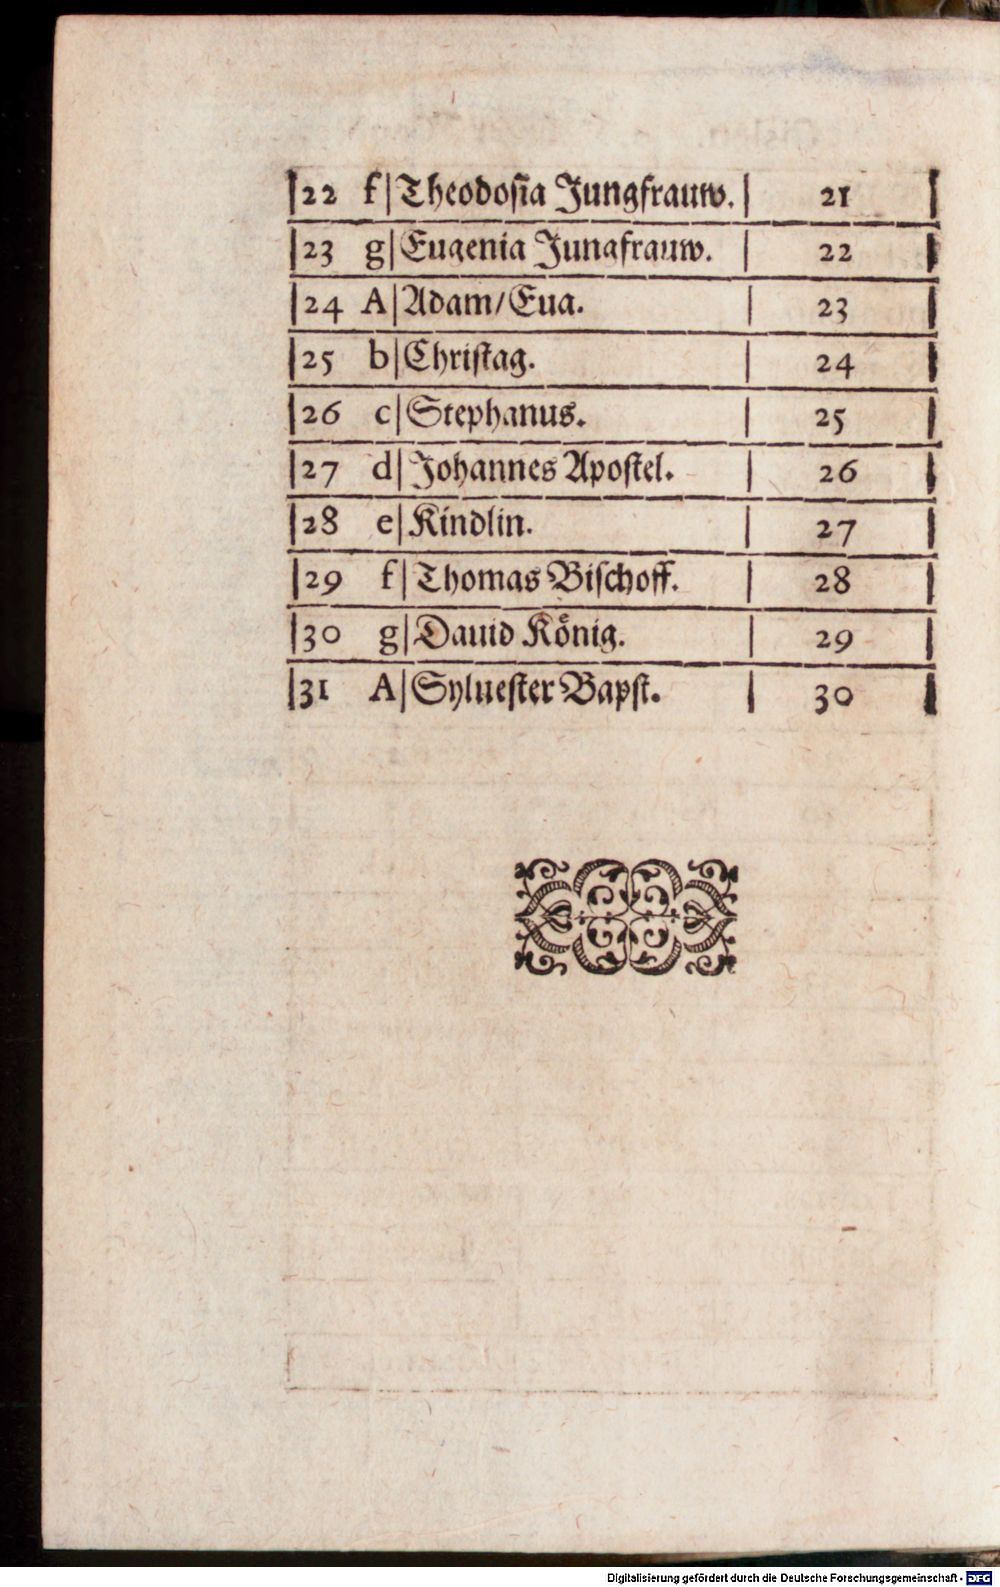 22 f Theodosia Jungfrauw. 21
23 g Eugenia Jungfrauw. 22
24 A Adam/Eua. 23
25 b Christag. 24
26 c Stephanus. 25
27 d Johannes Apostel. 26
28 e Kindlin. 27
29 f Thomas Bischoff. 28
30 g Dauid König. 29
31 A Syluester Bapst. 30
Digitalisierung gefördert durch die Deutsche Forschungsgemeinschaft - DFG